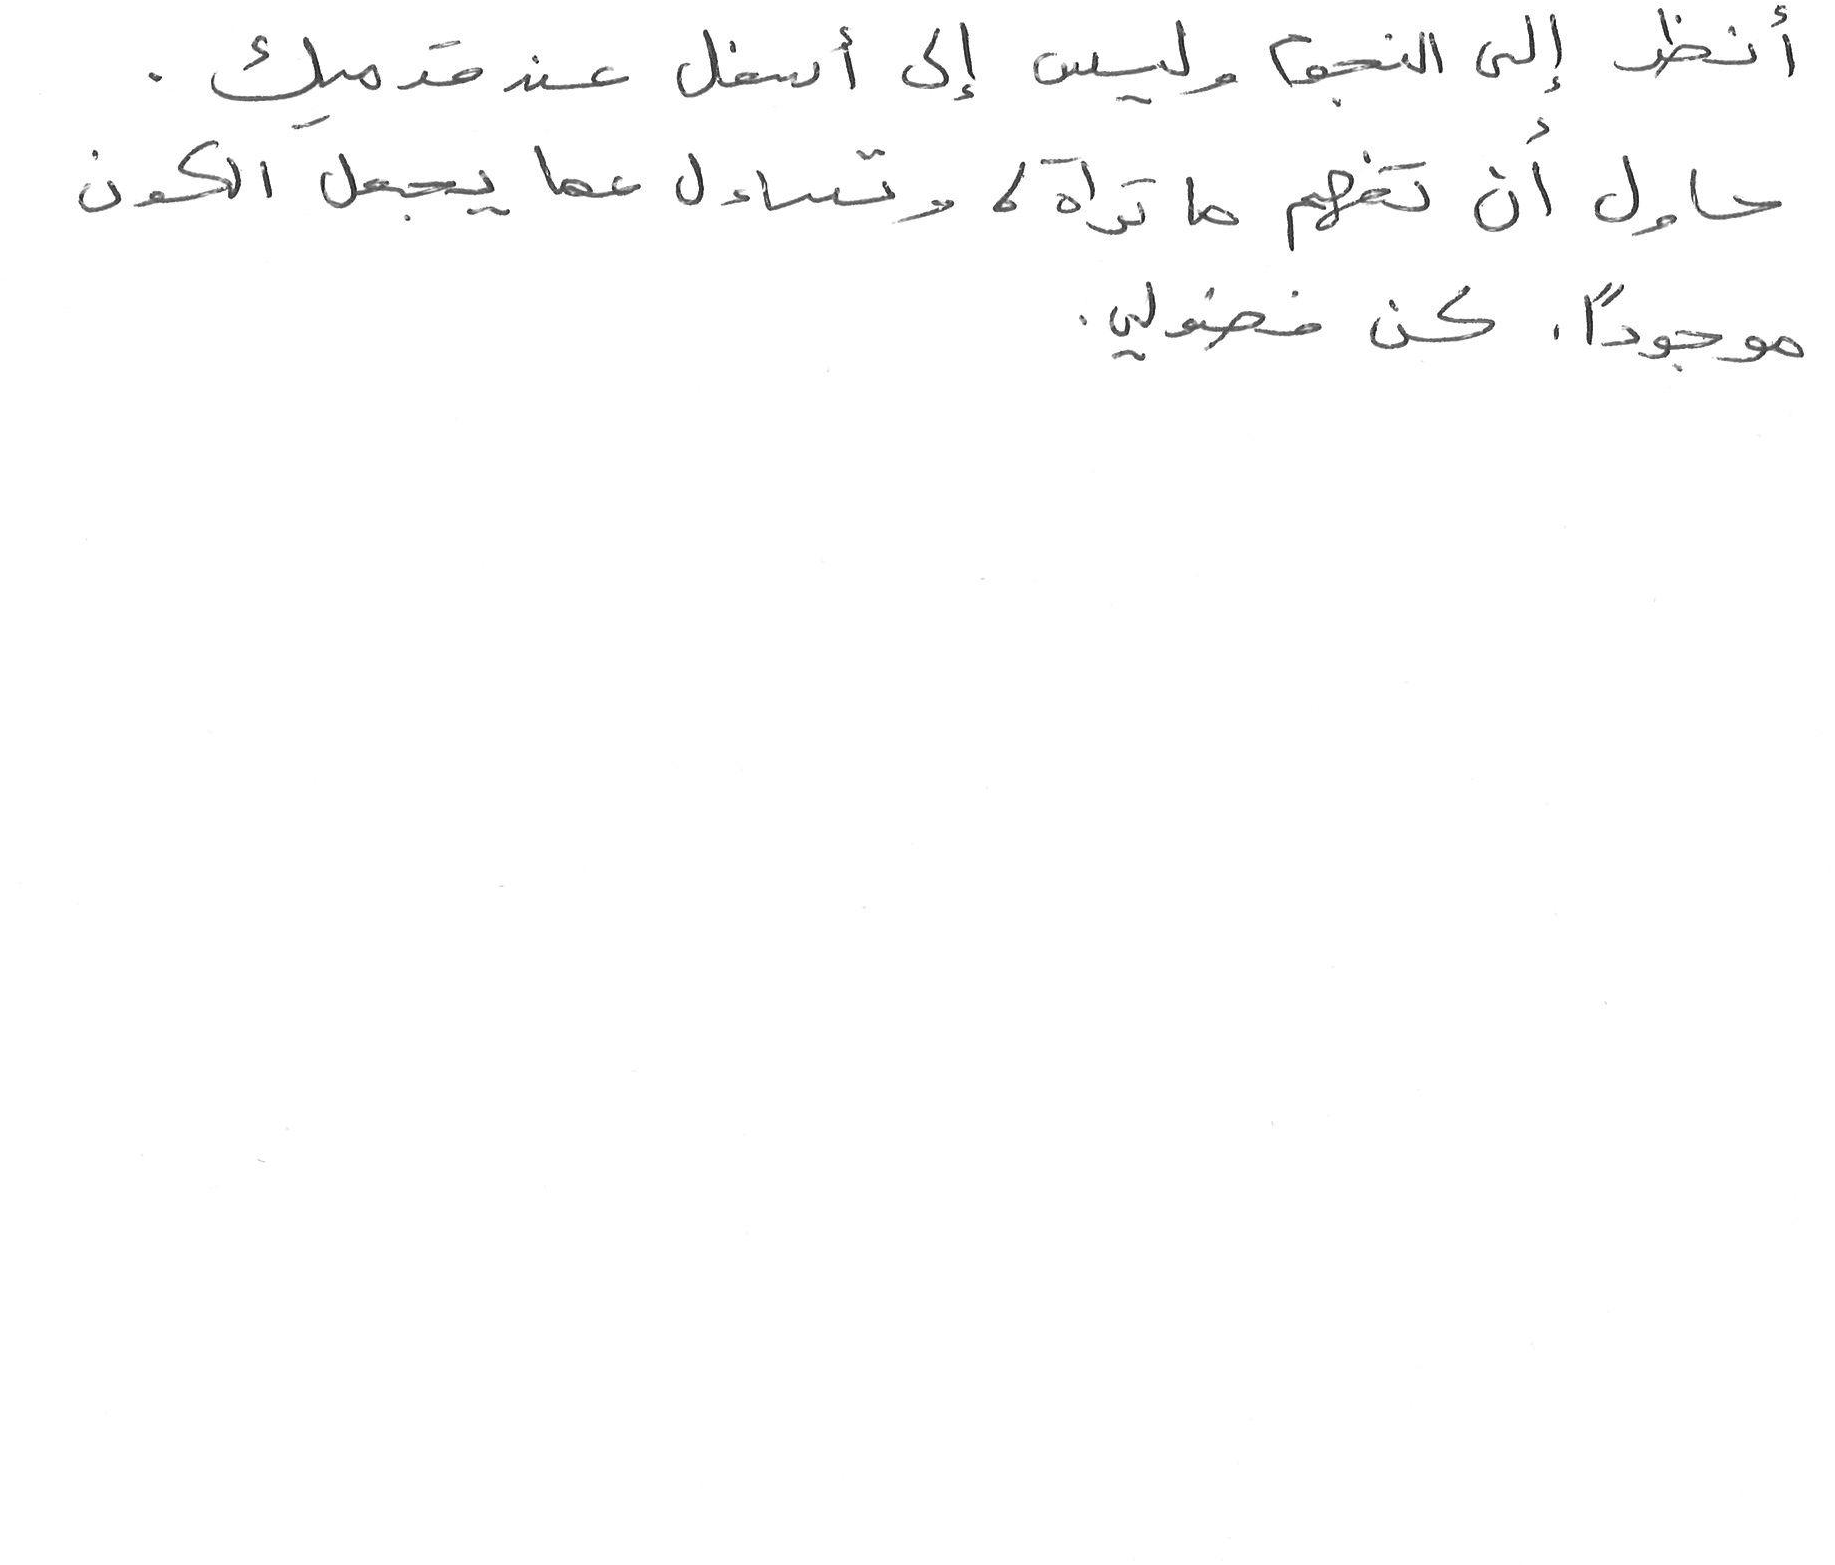 أنظر إلى النجوم وليس إلى أسفل عند قدميك .
حاول أن تفهم ما تراه ، وتساءل عما يجعل الكون
موجوداً . كن فضولي .